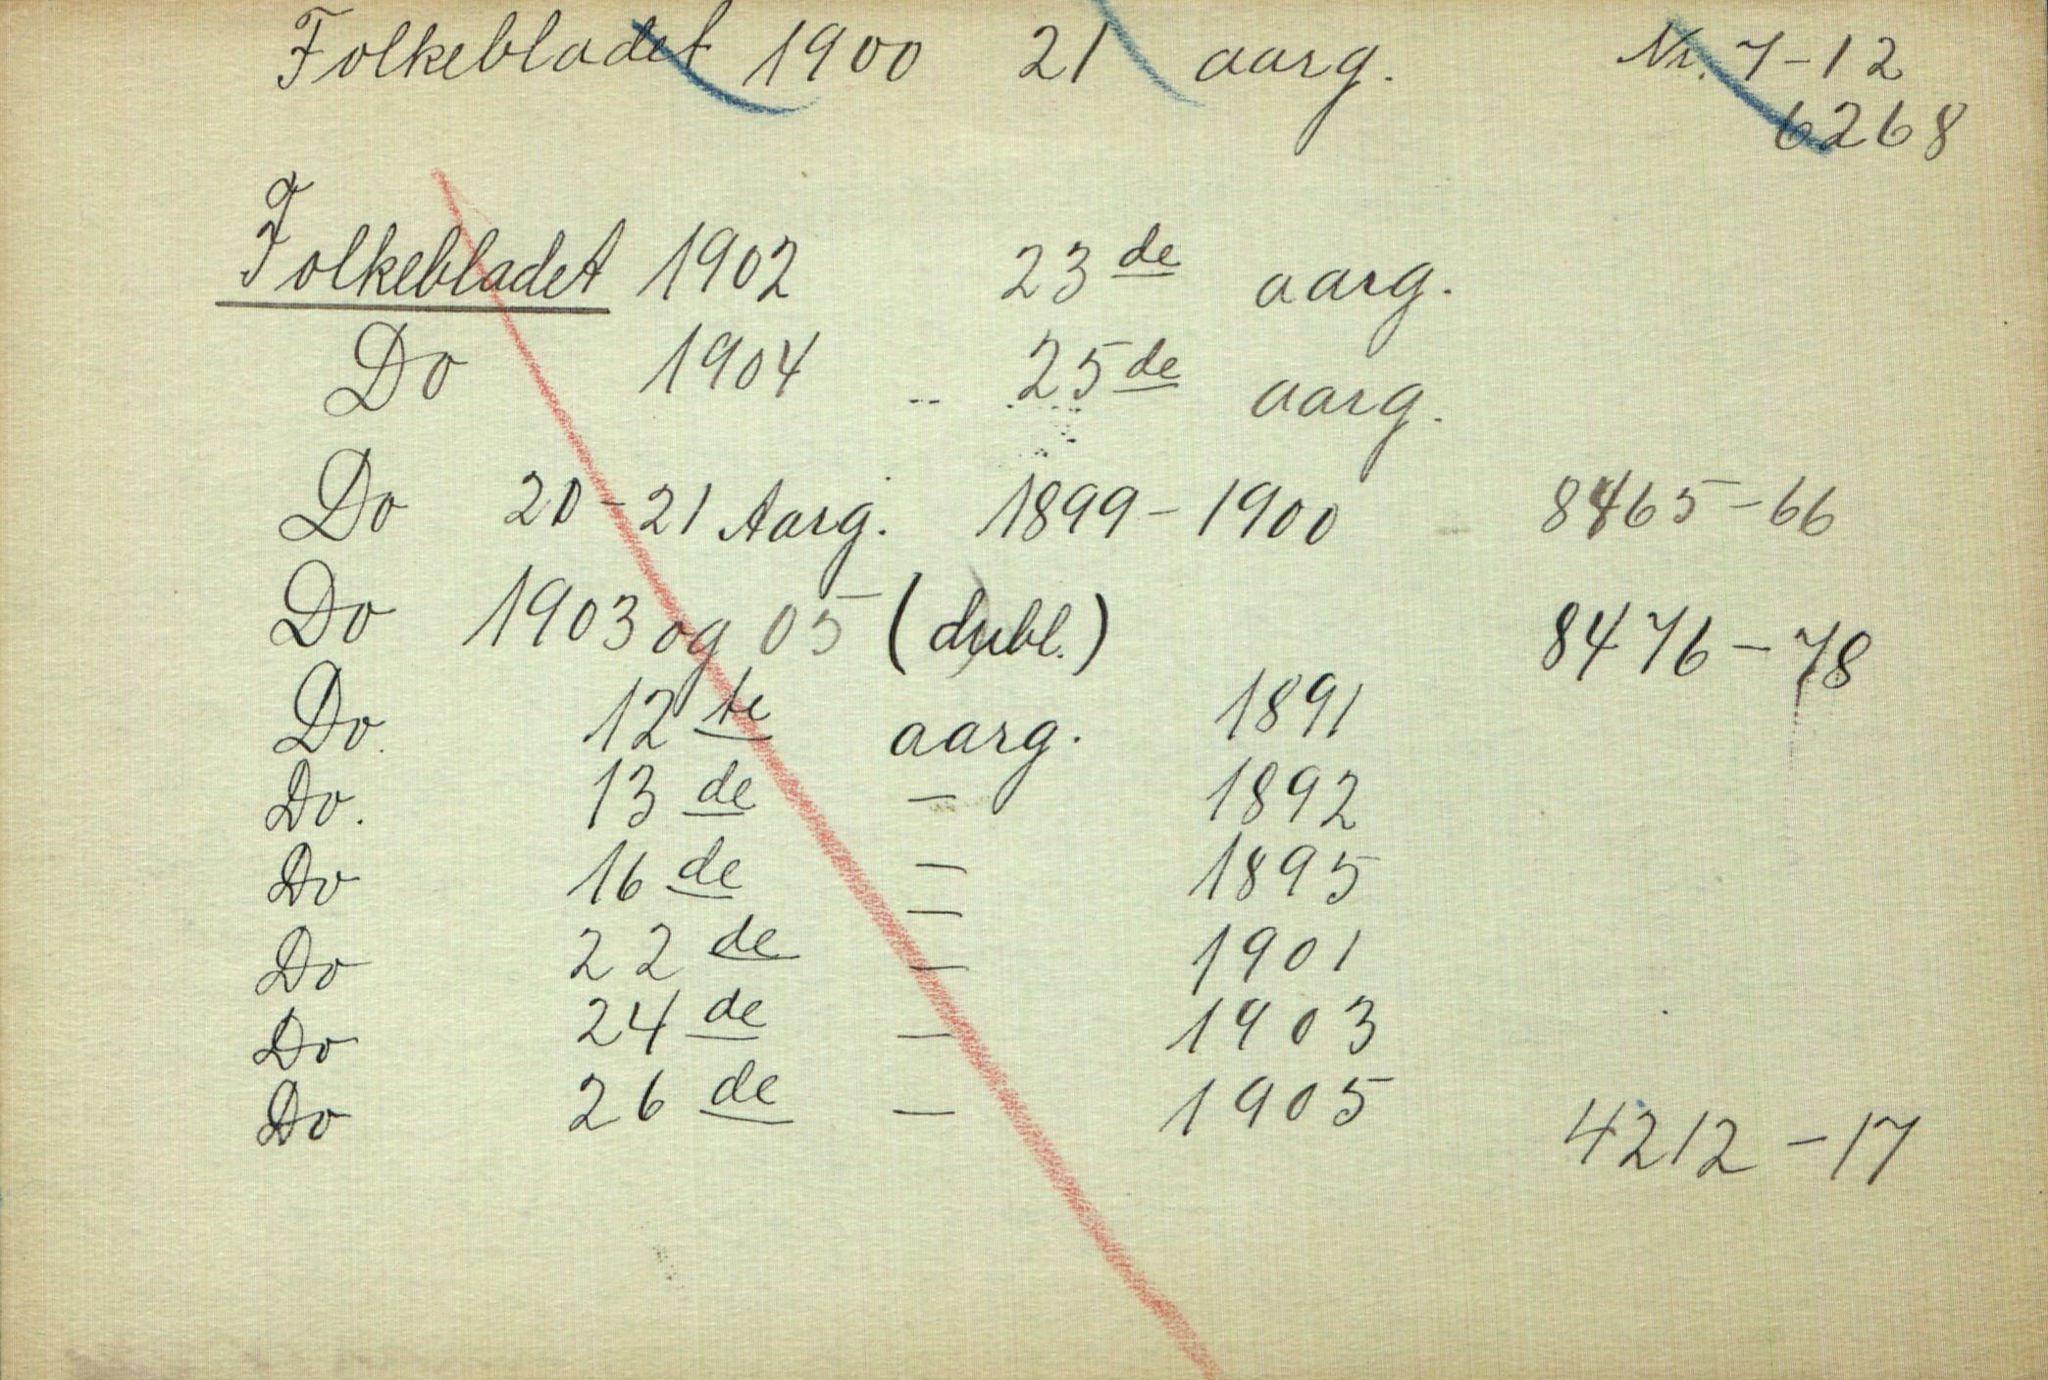 Folkebladet 1900 21 aarg. Nr. 7-12
6268
Folkebladet 1902 23de aarg.
Do 1904 25de aarg.
Do 20-21 Aarg. 1899-1900 8465-66
Do 1903 og 05 (dubl.) 8476-78
Do. 12te aarg. 1891
Do. 13de — 1892
Do 16de — 1895
Do 22de — 1901
Do 24de — 1903
Do 26de — 1905
4212-17